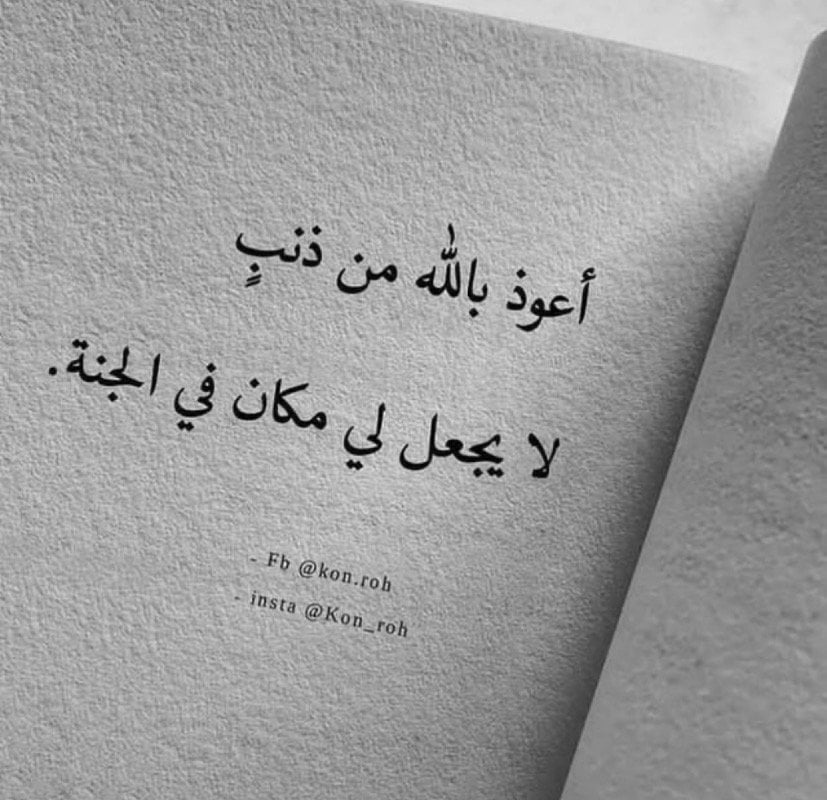 أعوذ بالله من ذنبٍ
لا يجعل لي مكان في الجنة.
- Fb @kon.roh
- insta @Kon_roh